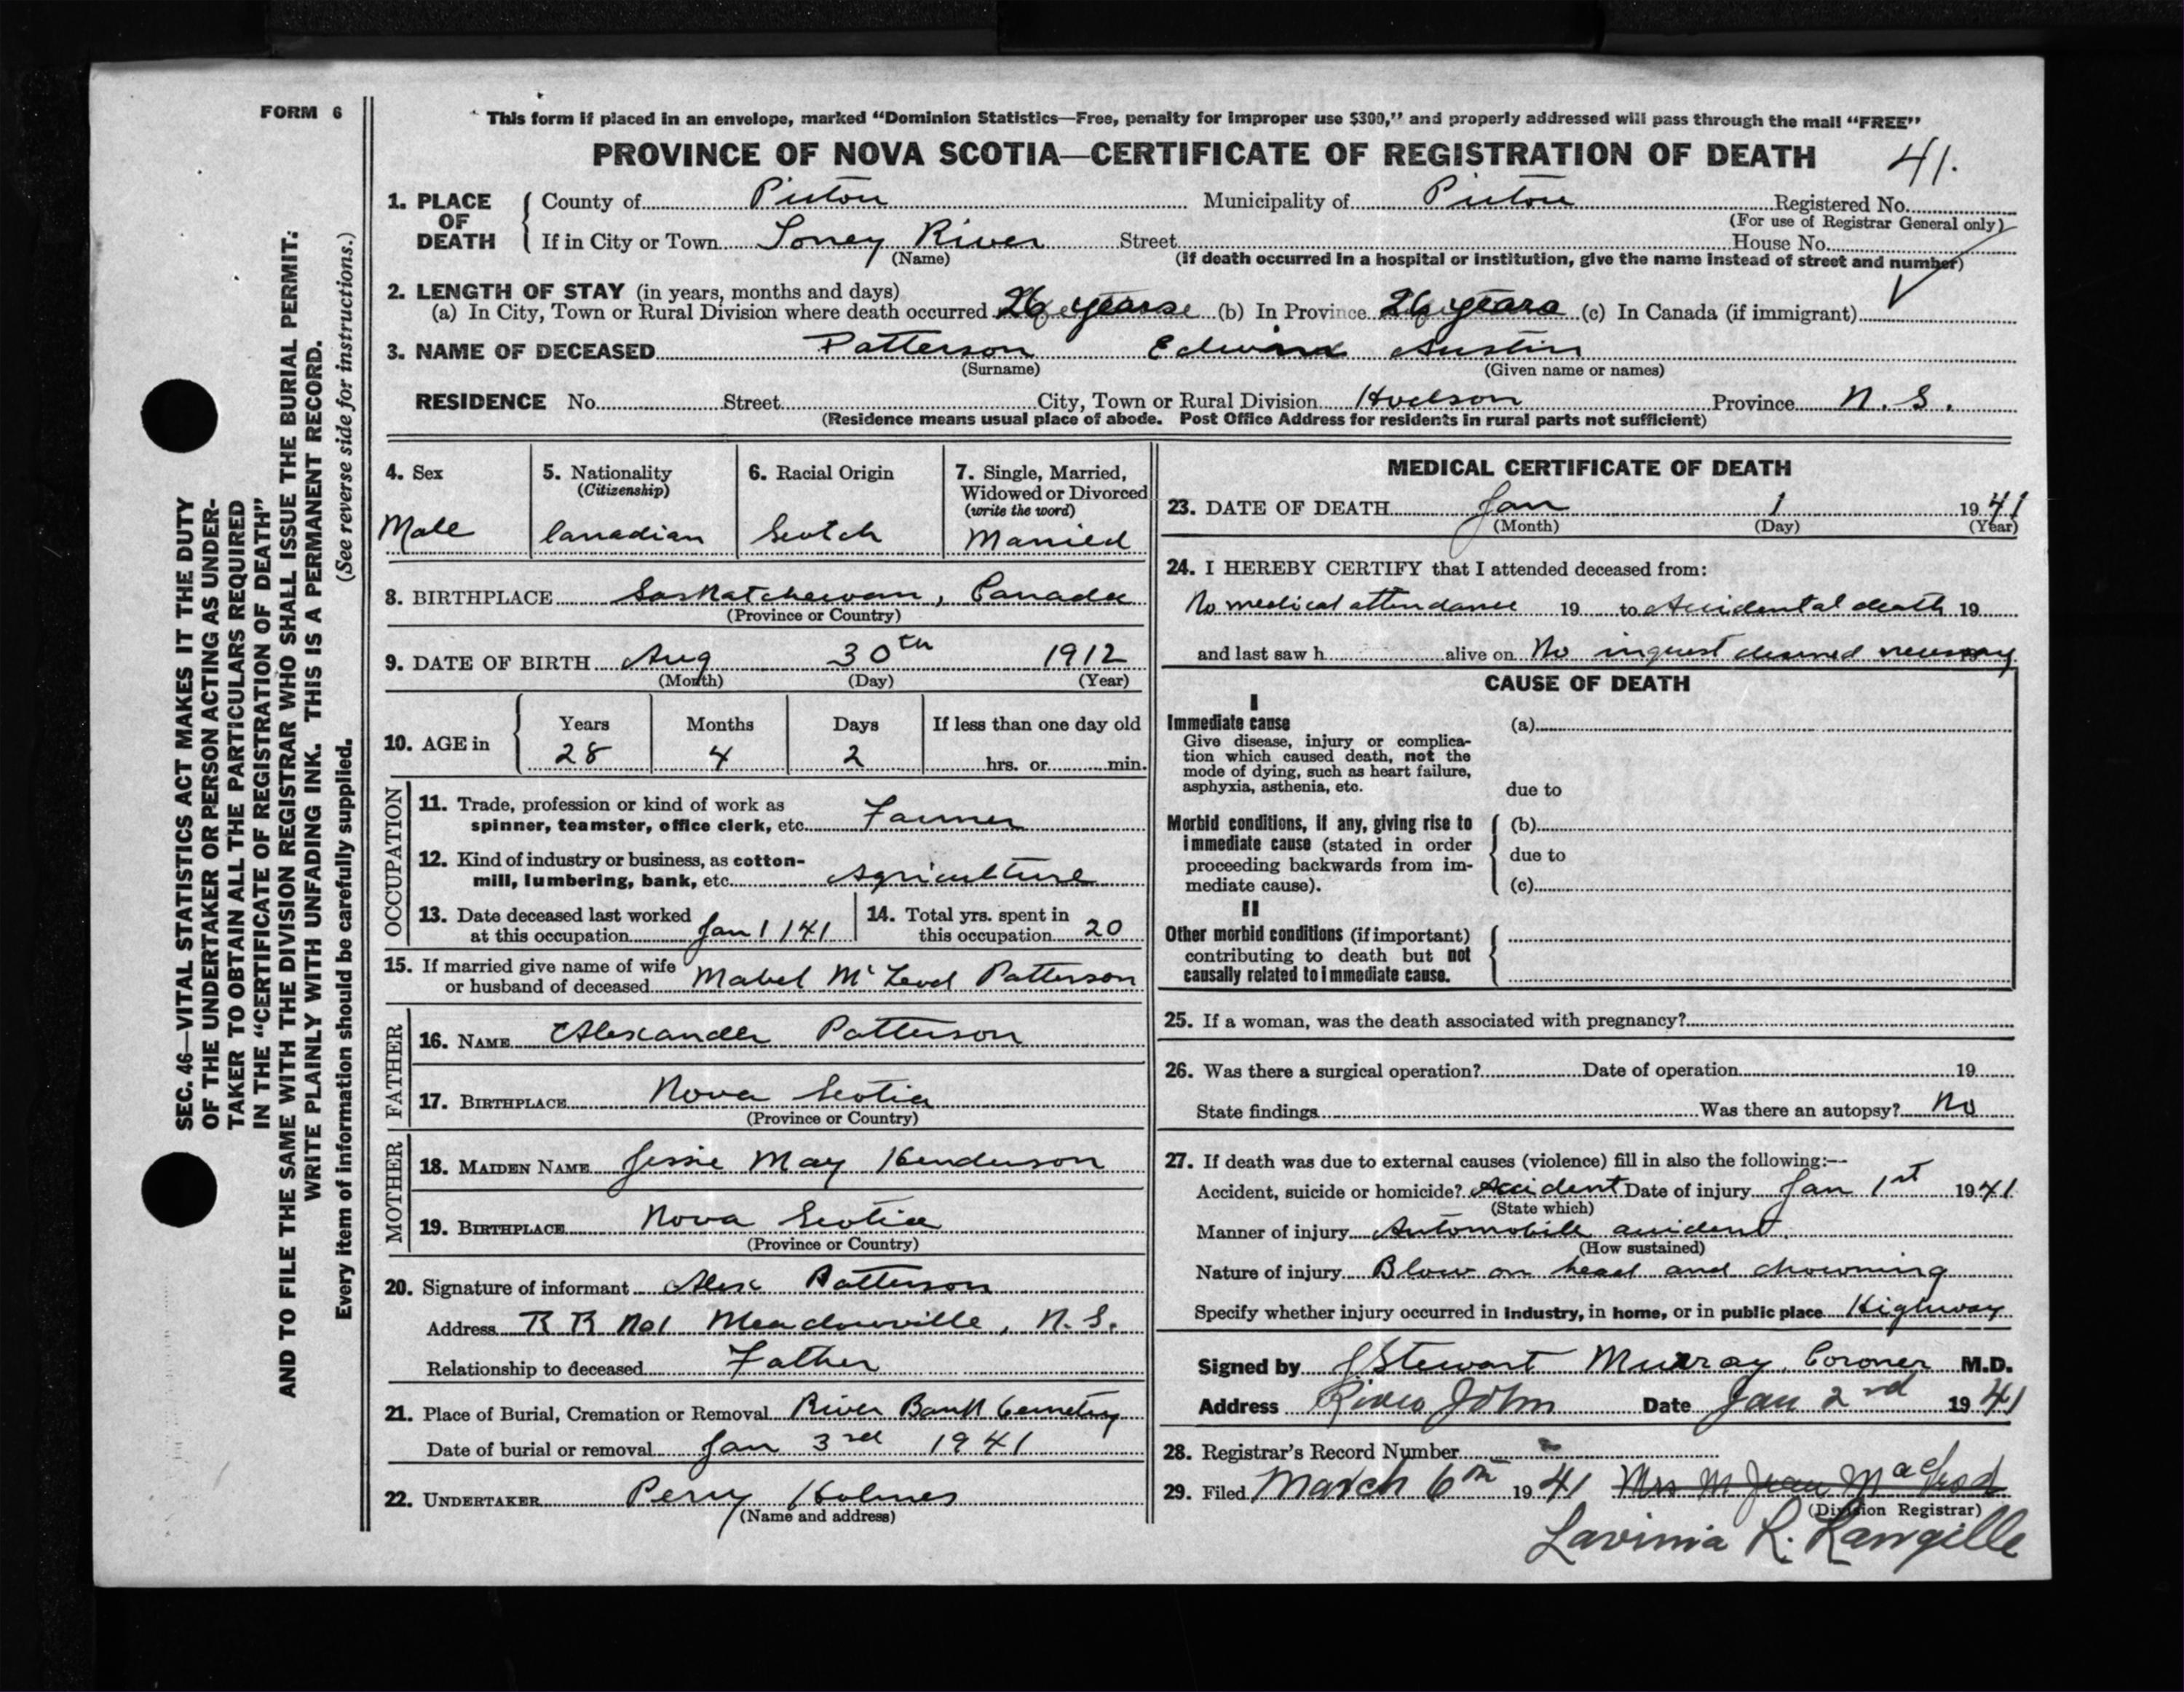 FORM 6
This form if placed in an envelope, marked "Dominion Statistics—Free, penalty for improper use $300," and properly addressed will pass through the mail "FREE"
PROVINCE OF NOVA SCOTIA—CERTIFICATE OF REGISTRATION OF DEATH 41.
1. PLACE OF DEATH
County of Pictou Municipality of Pictou Registered No.
(For use of Registrar General only)
If in City or Town Toney River Street House No.
(Name) (If death occurred in a hospital or institution, give the name instead of street and number)
2. LENGTH OF STAY (in years, months and days)
(a) In City, Town or Rural Division where death occurred 26 years (b) In Province 26 years (c) In Canada (if immigrant)
3. NAME OF DECEASED Patterson Edwind Austin
(Surname) (Given name or names)
RESIDENCE No. Street City, Town or Rural Division Hodson Province N. S.
(Residence means usual place of abode. Post Office Address for residents in rural parts not sufficient)
4. Sex
Male
5. Nationality
(Citizenship)
Canadian
6. Racial Origin
Scotch
7. Single, Married,
Widowed or Divorced
(write the word)
Married
8. BIRTHPLACE Saskatchewan, Canada
(Province or Country)
9. DATE OF BIRTH Aug 30th 1912
(Month) (Day) (Year)
10. AGE in
Years Months Days If less than one day old
28 4 2 hrs. or min.
OCCUPATION
11. Trade, profession or kind of work as
spinner, teamster, office clerk, etc. Farmer
12. Kind of industry or business, as cotton-
mill, lumbering, bank, etc. Agriculture
13. Date deceased last worked
at this occupation Jan 1 141
14. Total yrs. spent in
this occupation 20
15. If married give name of wife
or husband of deceased Mabel McLeod Patterson
FATHER
16. NAME Alexander Patterson
17. BIRTHPLACE Nova Scotia
(Province or Country)
MOTHER
18. MAIDEN NAME Jessie May Henderson
19. BIRTHPLACE Nova Scotia
(Province or Country)
20. Signature of informant Alex Patterson
Address R R No 1 Meadowville, N. S.
Relationship to deceased Father
21. Place of Burial, Cremation or Removal River Bank Cemetery
Date of burial or removal Jan 3rd 1941
22. UNDERTAKER Perry Holmes
(Name and address)
MEDICAL CERTIFICATE OF DEATH
23. DATE OF DEATH Jan 1 1941
(Month) (Day) (Year)
24. I HEREBY CERTIFY that I attended deceased from:
No medical attendance 19 to Accidental death 19
and last saw h alive on No inquest deemed necessary
CAUSE OF DEATH
I
Immediate cause (a)
Give disease, injury or complica-
tion which caused death, not the
mode of dying, such as heart failure,
asphyxia, asthenia, etc. due to
Morbid conditions, if any, giving rise to (b)
immediate cause (stated in order
proceeding backwards from im- due to
mediate cause). (c)
II
Other morbid conditions (if important)
contributing to death but not
causally related to immediate cause.
25. If a woman, was the death associated with pregnancy?
26. Was there a surgical operation? Date of operation 19
State findings Was there an autopsy? No
27. If death was due to external causes (violence) fill in also the following:—
Accident, suicide or homicide? Accident Date of injury Jan 1st 1941
(State which)
Manner of injury Automobile accident
(How sustained)
Nature of injury Blow on head and drowning
Specify whether injury occurred in industry, in home, or in public place Highway
Signed by J Stewart Murray, Coroner M.D.
Address River John Date Jan 2nd 1941
28. Registrar's Record Number
29. Filed March 6th 1941 Mrs M Jean MacLeod
(Division Registrar)
Lavinia R. Langille
SEC. 46—VITAL STATISTICS ACT MAKES IT THE DUTY
OF THE UNDERTAKER OR PERSON ACTING AS UNDER-
TAKER TO OBTAIN ALL THE PARTICULARS REQUIRED
IN THE "CERTIFICATE OF REGISTRATION OF DEATH"
AND TO FILE THE SAME WITH THE DIVISION REGISTRAR WHO SHALL ISSUE THE BURIAL PERMIT.
WRITE PLAINLY WITH UNFADING INK. THIS IS A PERMANENT RECORD.
Every item of information should be carefully supplied. (See reverse side for instructions.)